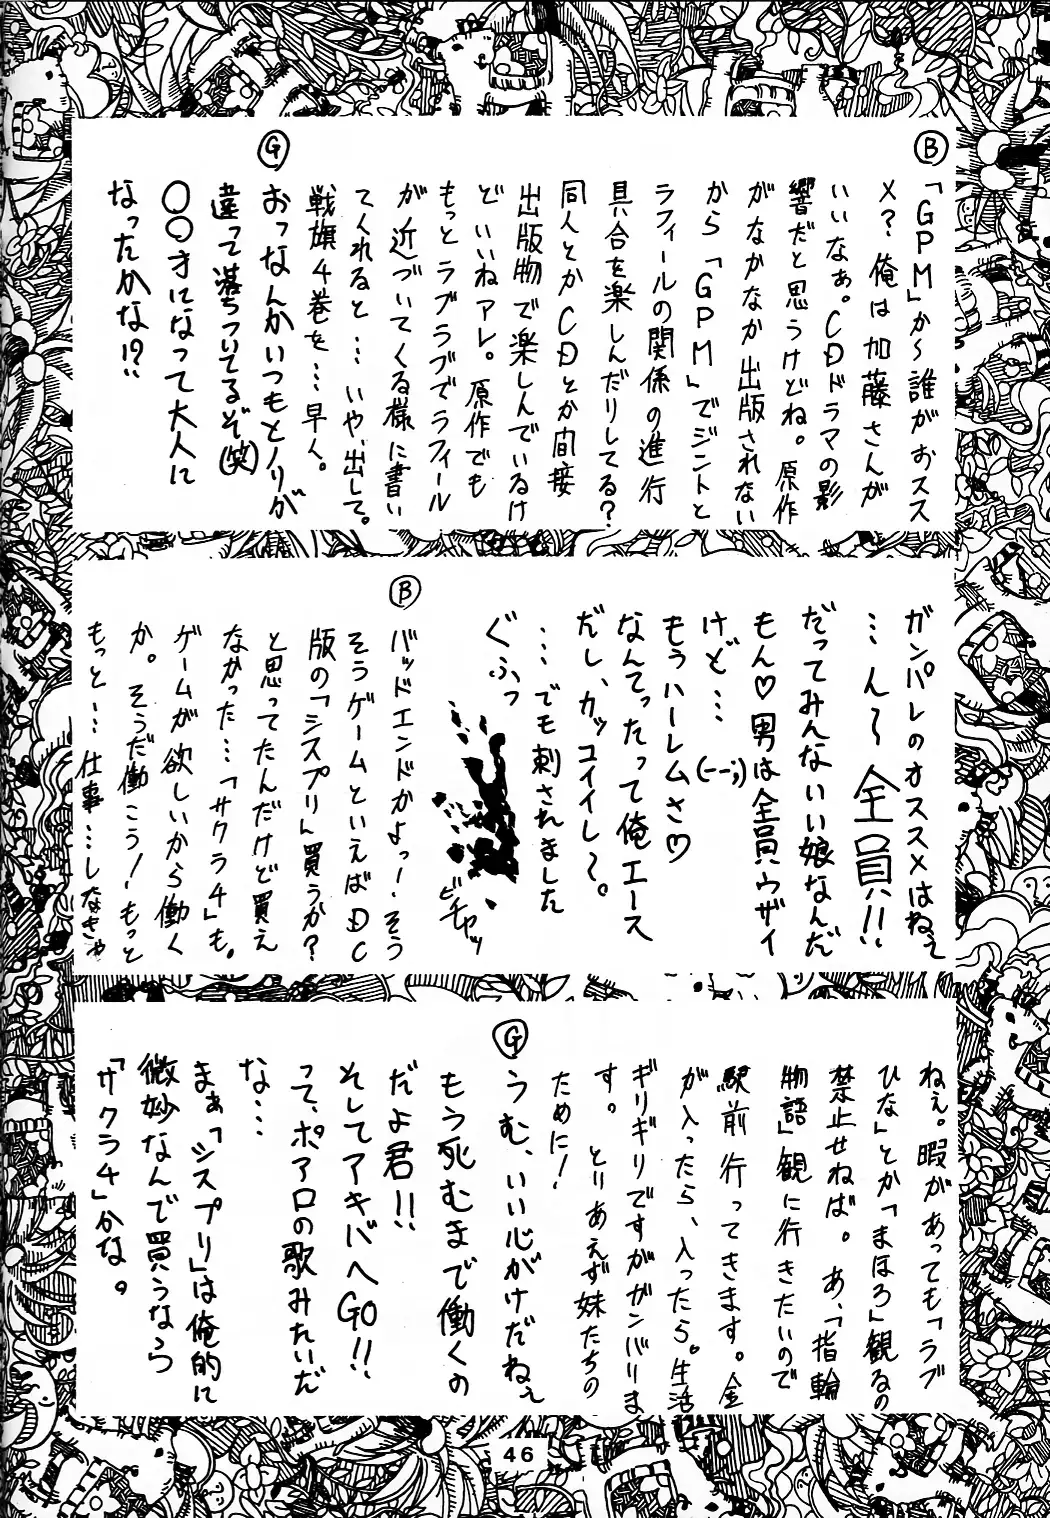 Ⓑ
「GPM」か~誰がおスス
メ?俺は加藤さんが
いいなぁ。CDドラマの影
響だと思うけどね。原作
がなかなか出版されない
から「GPM」でジントと
ラフィールの関係の進行
具合を楽しんだりしてる?
同人とかCDとか間接
出版物で楽しんでいるけ
どいいねアレ。原作でも
もっとラブラブでラフィール
が近づいてくる様に書い
てくれると…いや、出して。
戦旗4巻を…早く。
Ⓖ
おっなんかいつもとノリが
違って落ちついてるぞ(笑)
〇〇才になって大人に
なったかな!?
ガンパレのオススメはねぇ
…ん~全員!!
だってみんないい娘なんだ
もん♡男は全員ウザイ
けど…(--;)
もうハーレムさ♡
なんてったって俺エース
だし、カッコイイし~。
…でも刺されました
ぐふっ
ビチャッ
Ⓑ
バッドエンドかよっ!そう
そうゲームといえばDC
版の「シスプリ」買うか?
と思ってたんだけど買え
なかった…「サクラ4」も。
ゲームが欲しいから働く
か。そうだ働こう!もっと
もっと…仕事…しなきゃ
ねぇ。暇があっても「ラブ
ひな」とか「まほろ」観るの
禁止せねば。あ、「指輪
物語」観に行きたいので
駅前行ってきます。金
が入ったら、入ったら。生活
ギリギリですがガンバリま
す。とりあえず妹たちの
ために!
Ⓖ
うむ、いい心がけだねぇ
もう死むまで働くの
だよ君!!
そしてアキバへGO!!
って、ポアロの歌みたいだ
な…
まぁ「シスプリ」は俺的に
微妙なんで買うなら
「サクラ4」かな。
46